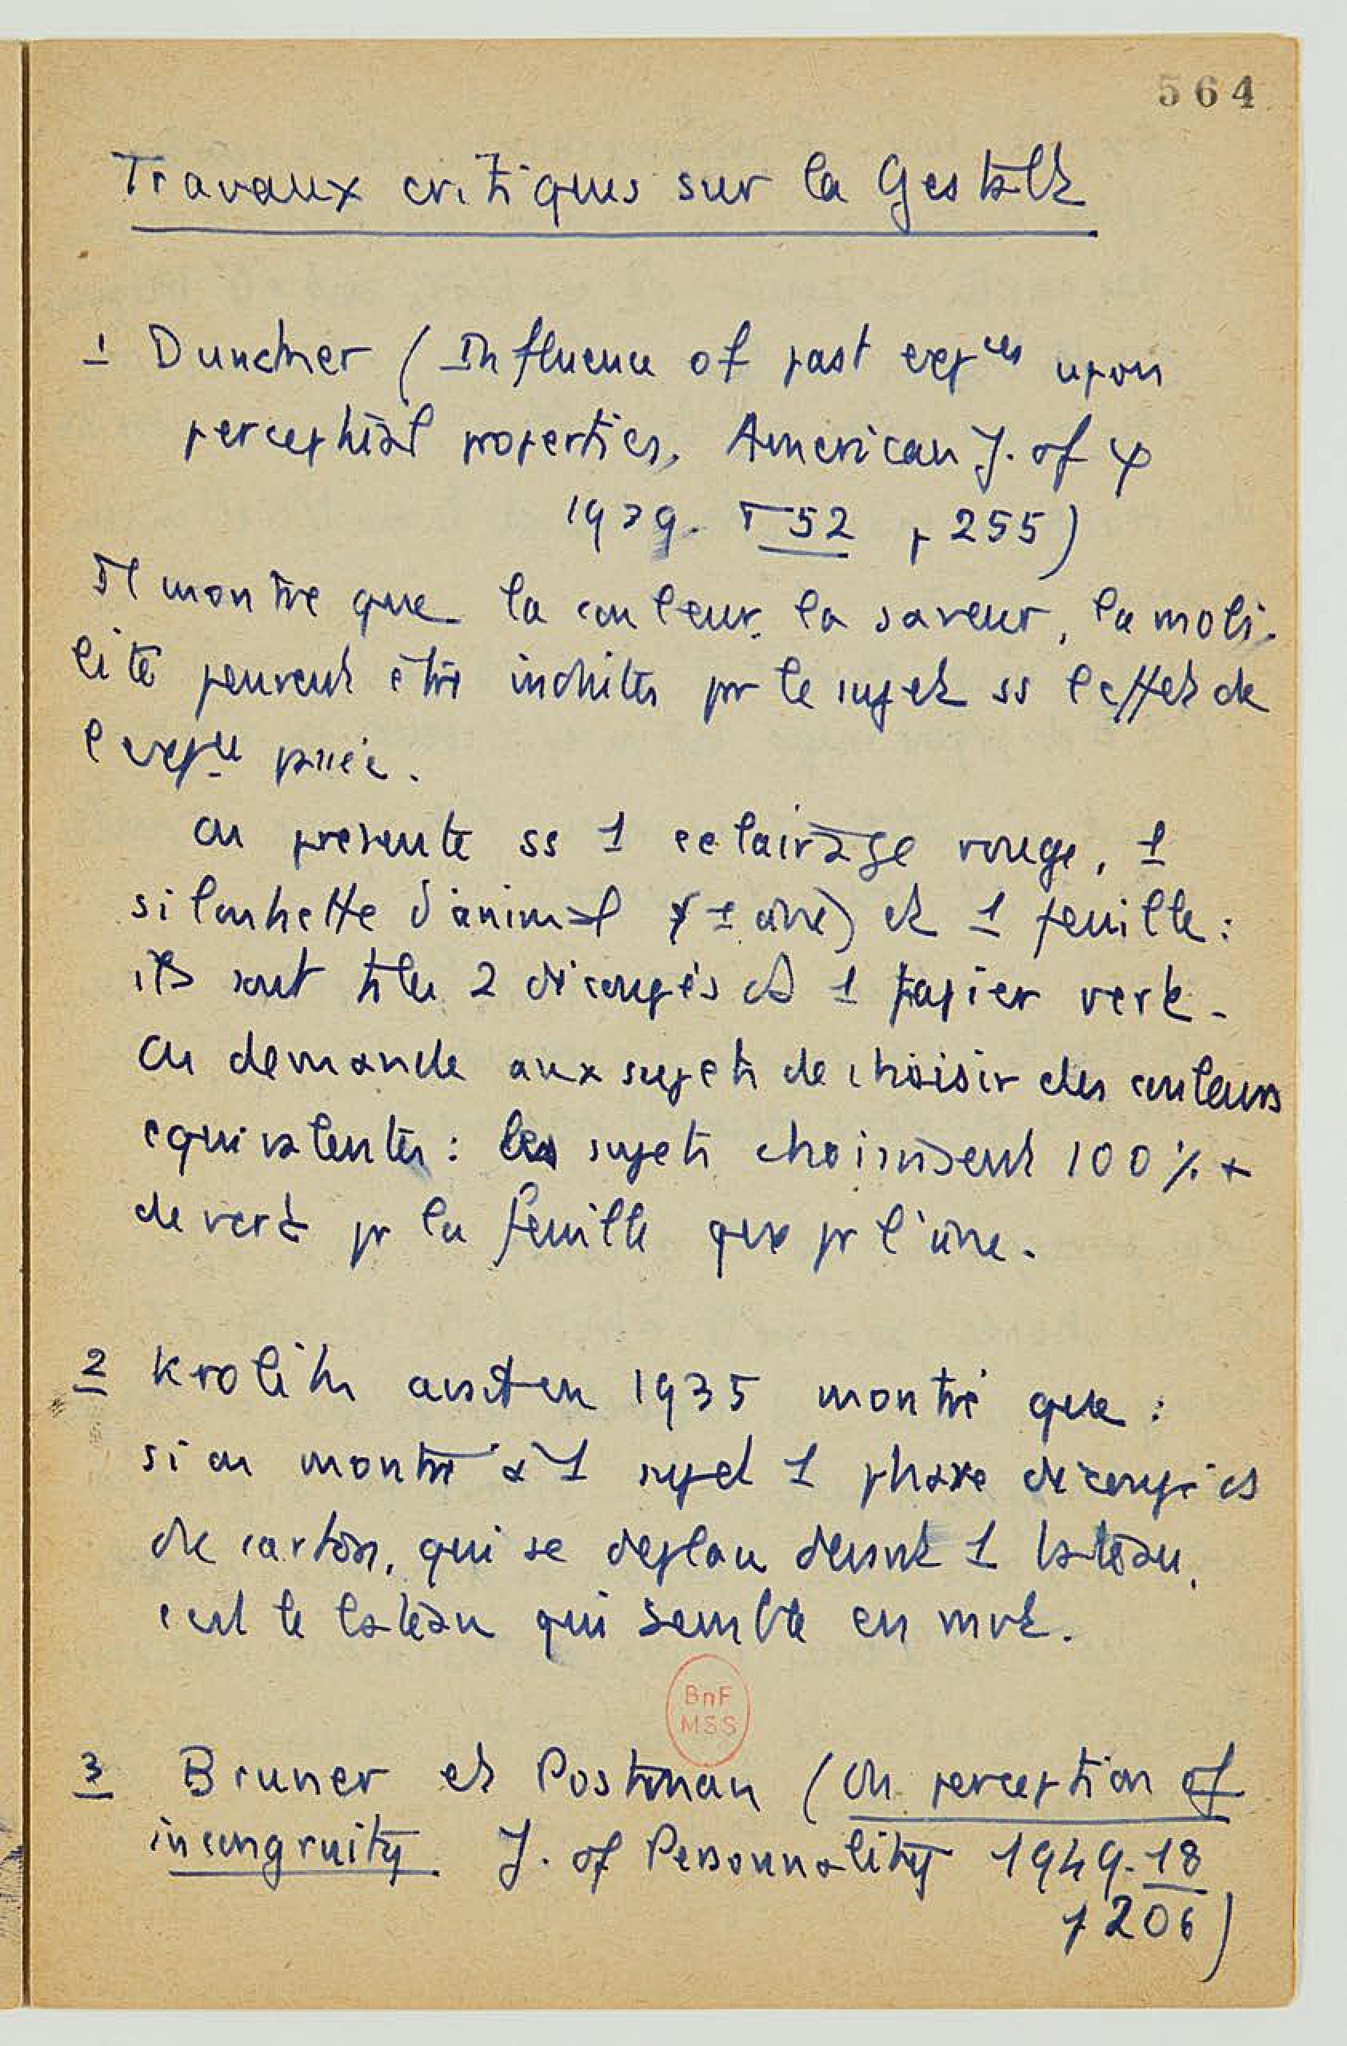 564
Travaux critiques sur la Gestalt
1 Duncker (Influence of past expces upon
perceptual properties. American J. of ψ
1939. T 52 p 255)
Il montre que la couleur, la saveur, la mobi-
lité peuvent être induites par le sujet ss l'effet de
l'expce passée.
On présente ss 1 éclairage rouge, 1
silouhette d'animal (1 âne) et 1 feuille :
ils sont tts les 2 découpés ds 1 papier vert.
On demande aux sujets de choisir des couleurs
équivalentes : les sujets choisissent 100 % +
de vert pr la feuille que pr l'âne.
2 Krolik en 1935 montré que :
si on montre à 1 sujet 1 phare découpé ds
du carton, qui se déplace devant 1 bateau,
c'est le bateau qui semble en mvt.
BnF
MSS
3 Bruner et Postman (On perception of
incongruity. J. of Personnality 1949. 18
p 206)